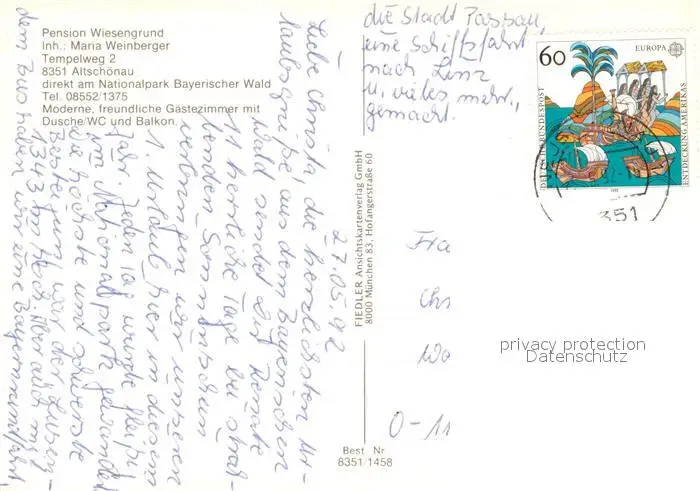 Pension Wiesengrund
Inh.: Maria Weinberger
Tempelweg 2
8351 Altschönau
direkt am Nationalpark Bayerischer Wald
Tel. 08552/1375
Moderne, freundliche Gästezimmer mit
Dusche/WC und Balkon.
27.05.92
Liebe Christa, die herzlichsten Ur-
laubsgrüße aus dem Bayrischen
Wald sendet Dir Renate
11 herrliche Tage bei strah-
lenden Sonnenschein
verbringen wir unseren
1. Urlaub hier in diesem
Jahr. Jeden Tag wurde fleißig
im Nationalpark gewandert
die höchste und schwerste
Besteigung war der Lusen -
1343 m hoch. Aber auch mit
dem Bus haben wir eine Bayernrundfahrt,
die Stadt Passau,
eine Schiffsfahrt
nach Linz
u. vieles mehr,
gemacht.
FIEDLER Ansichtskartenverlag GmbH
8000 München 83, Hofangerstraße 60
Best. Nr.
8351/1458
60
EUROPA
DEUTSCHE BUNDESPOST
ENTDECKUNG AMERIKAS
351
Fra
Chr
O-11
privacy protection
Datenschutz